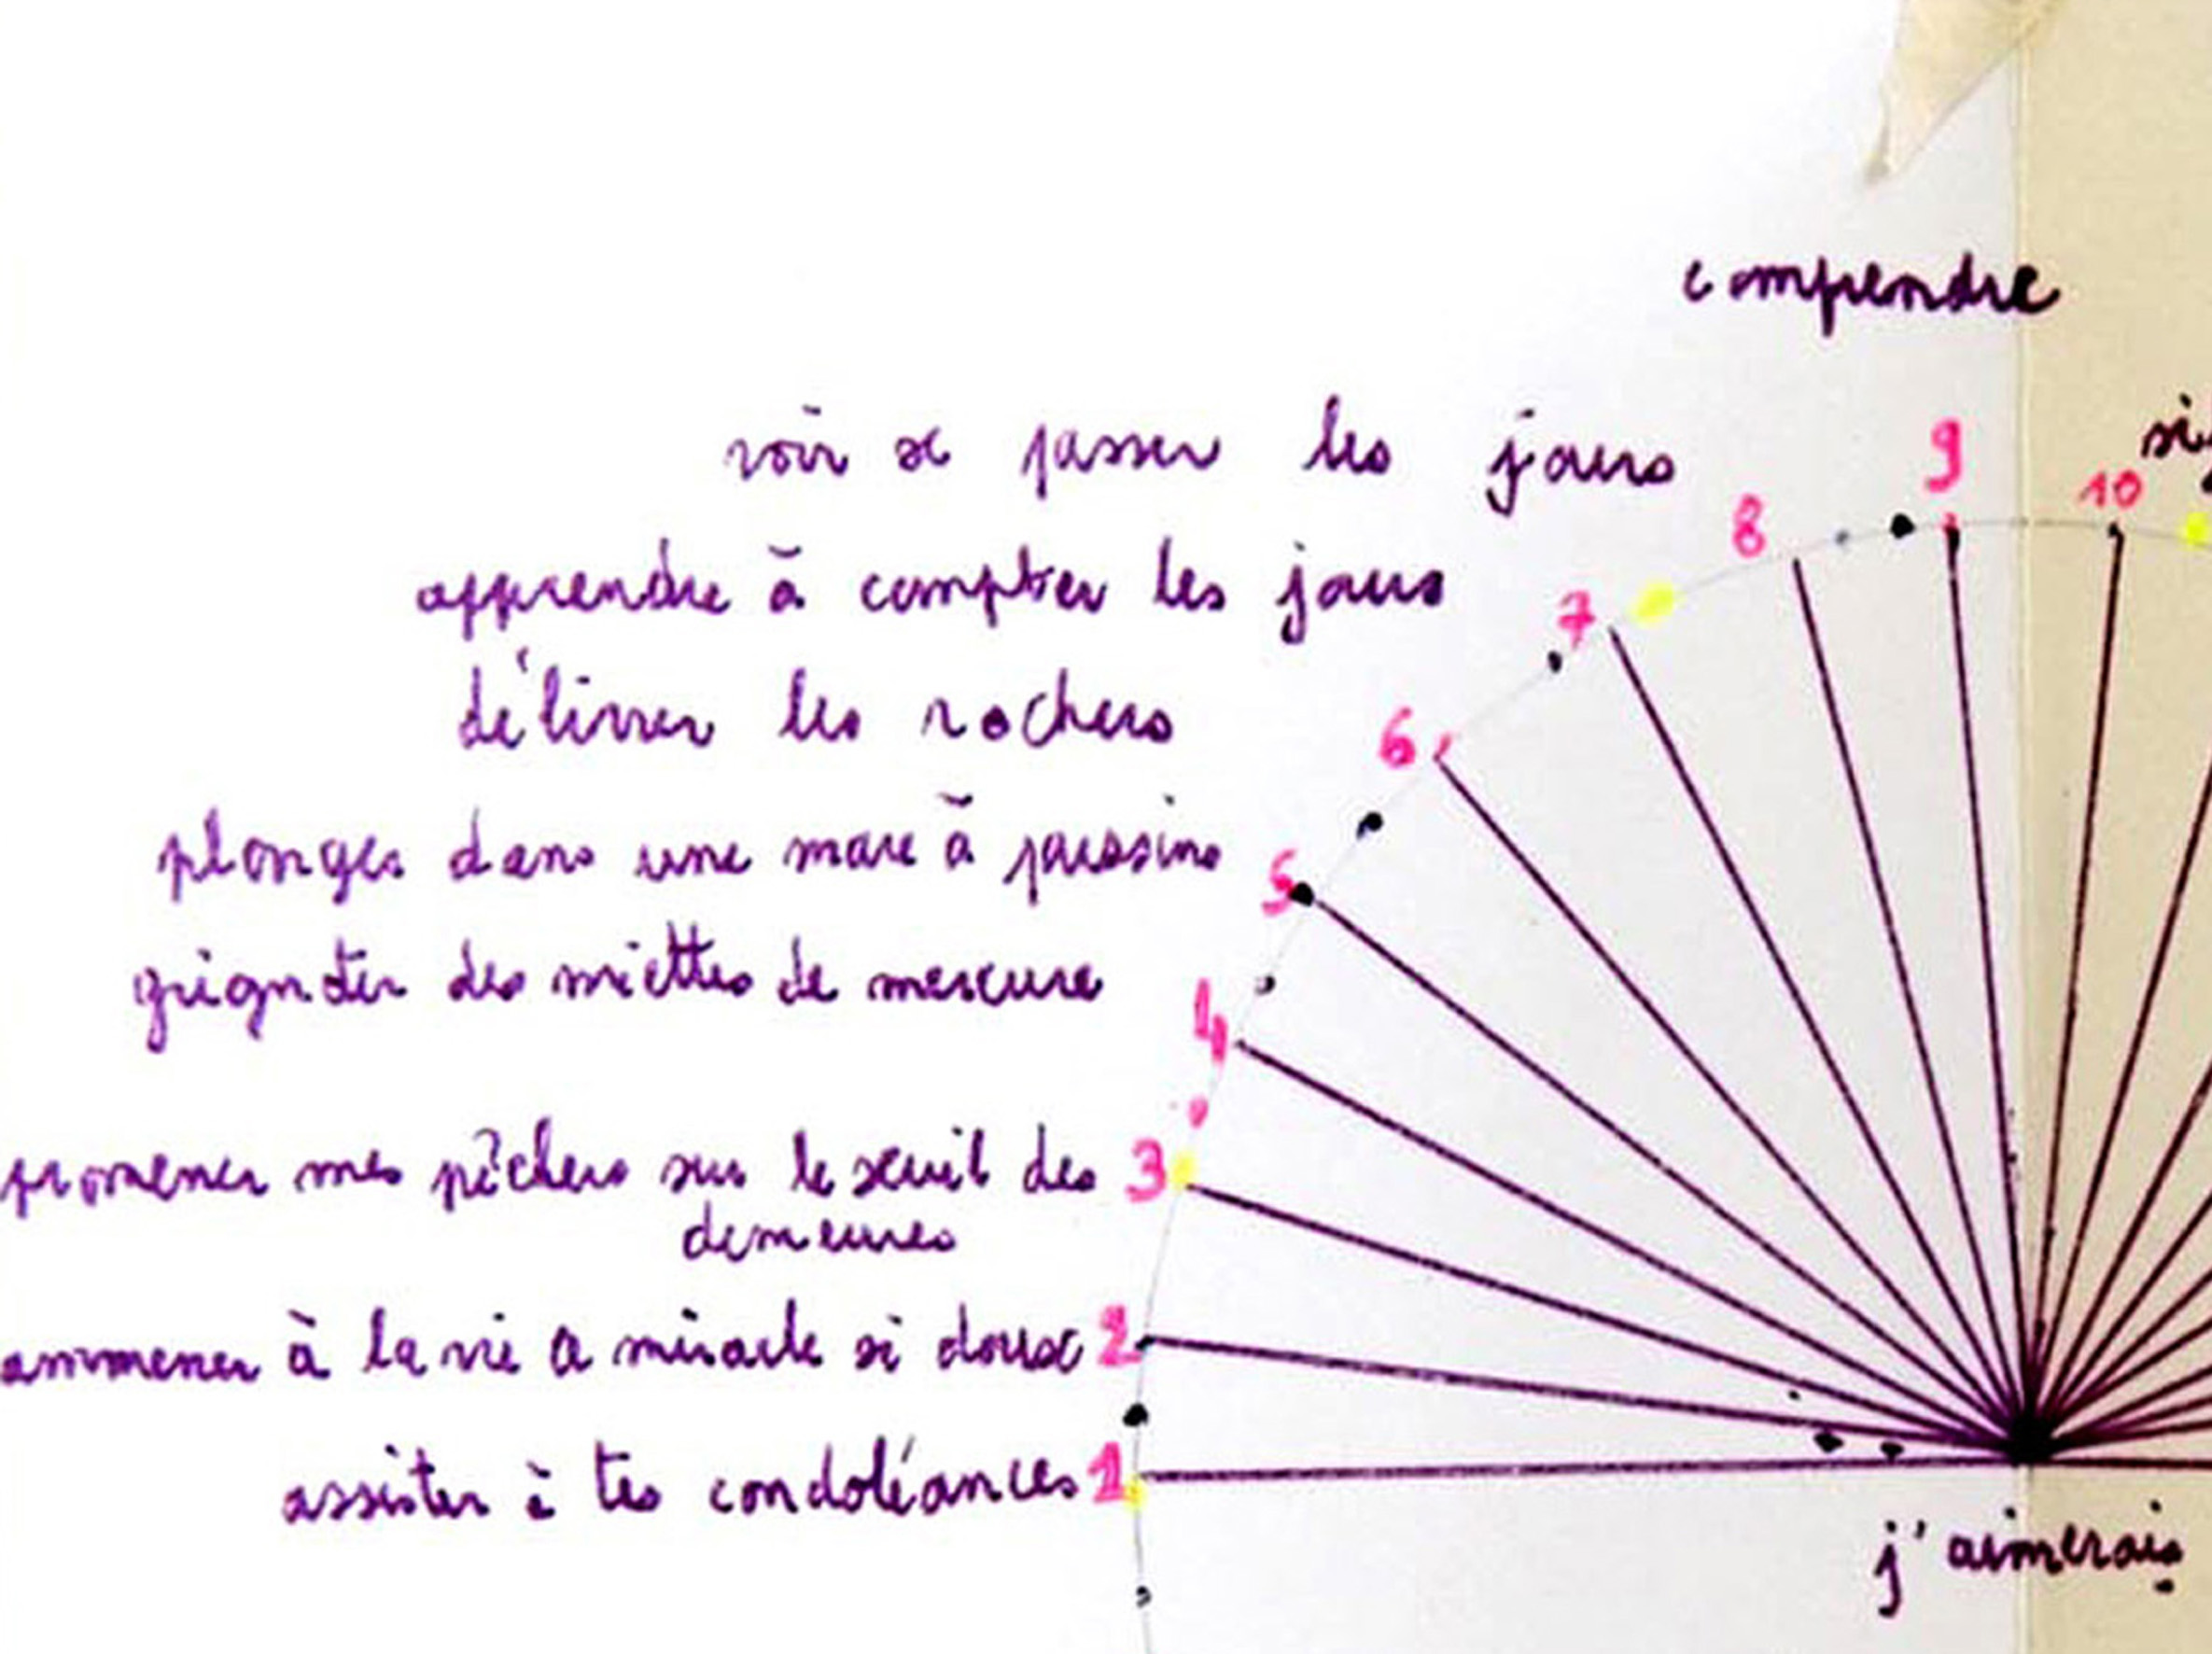 comprendre
voir se passer les jours
apprendre à compter les jours
délivrer les rochers
plonger dans une mare à poussins
grignoter des miettes de mercure
promener mes pêchers sur le seuil des
demeures
ammener à la vie a miracle si doux
assister à tes condoléances
1
2
3
4
5
6
7
8
9
10
j'aimerais